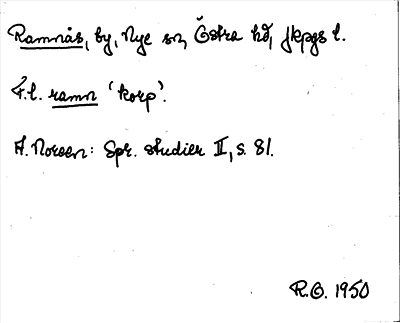 Ramnås, by, Nye sn, Östra hd, Jkpgs l.
F.l. ramn 'korp'.
A. Noreen: Spr. studier II, s. 81.
R.O. 1950